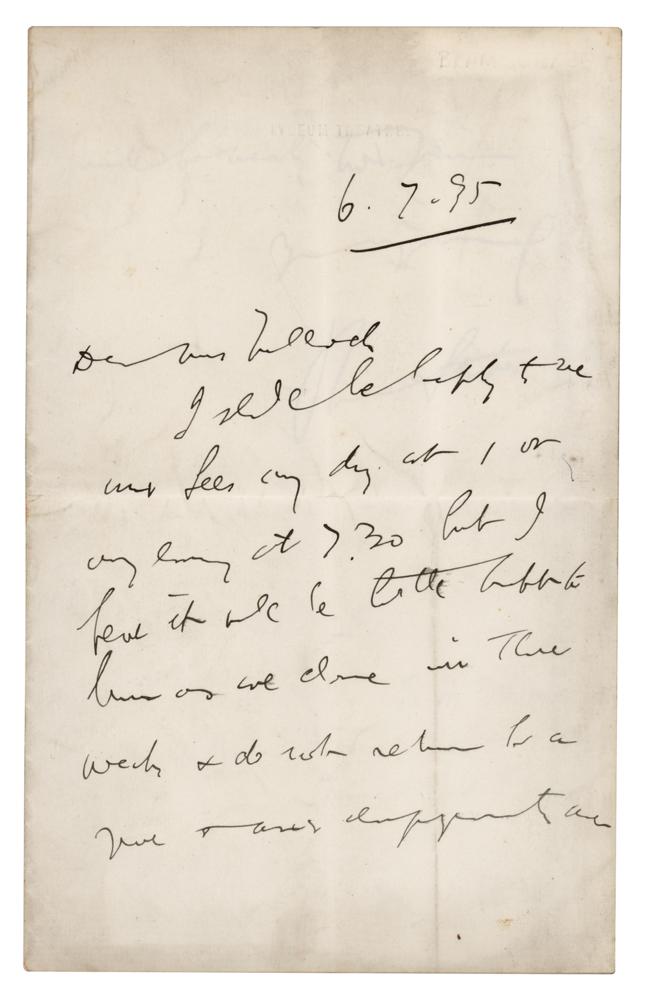 LYCEUM THEATRE
6.7.95
Dear Miss
I shall be happy to see
Miss Lees any day at 1 or
any evening at 7.30 but I
fear it will be little use to
as we close in three
weeks & do not return for a
year & our engagements are